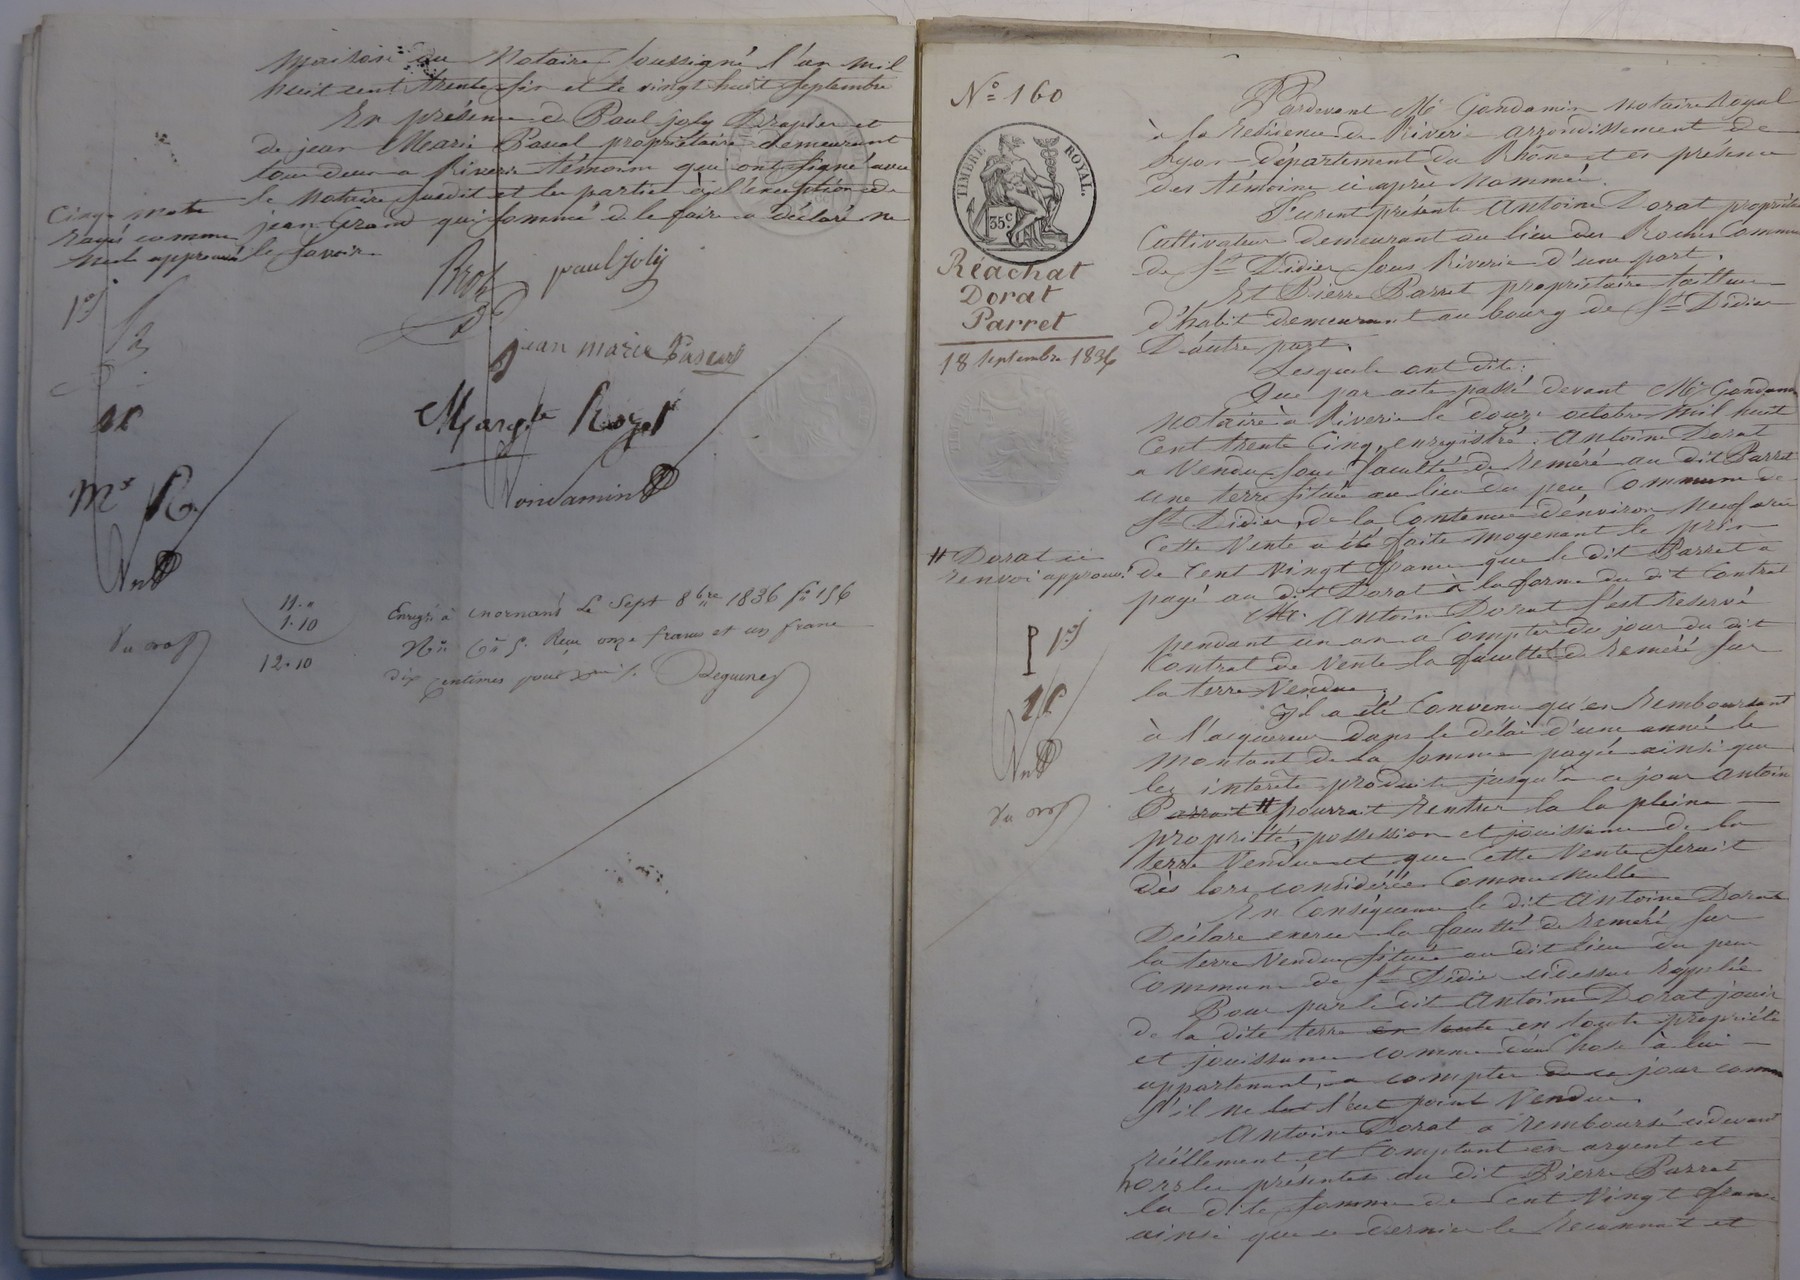 maison du Notaire soussigné l'an mil
huit cent trente six et le vingt huit Septembre
En présence de Paul joly Drapier et
de jean Marie Pascal propriétaire demeurant
tous deux a Riverie témoins qui ont signé avec
le Notaire susdit et les parties à l'exception de
jean Grand qui sommé de le faire a déclaré ne
le savoir.
Cinq mots
rayés comme
nuls approuvés
paul joly
jean marie Pascal
Marg.te Royet
Gondamin
Mte R.
11.»
1.10
12.10
Enregé à mornant Le Sept 8bre 1836 fo 156
Ro Con 5. Reçu onze francs et un franc
dix centimes pour Deguines
No 160
TIMBRE ROYAL.
35c
Réachat
Dorat
Parret
18 Septembre 1836
Pardevant Me Gondamin notaire Royal
à la Résidence de Riverie arrondissement de
Lyon département du Rhône et en présence
des témoins ci après Nommés.
Furent présents Antoine Dorat propriétaire
Cultivateur demeurant au lieu des Roches Commune
de St Didier sous Riverie d'une part.
Et Pierre Parret propriétaire tailleur
d'habit demeurant au bourg de St Didier
D'autre part.
Lesquels ont dit:
Que par acte passé devant Me Gondamin
Notaire à Riverie le douze octobre Mil huit
Cent trente Cinq, enregistré. Antoine Dorat
a Vendu sous faculté de Réméré au dit Parret
une terre située au lieu du peu Commune de
St Didier, de la Contenue d'environ Neuf ares
Cette Vente a été faite moyenant le prix
de Cent Vingt francs que le dit Parret a
payé au dit Dorat à la forme du dit Contrat
Antoine Dorat s'est Réservé
pendant un an a Compter du jour du dit
Contrat de Vente la faculté de Réméré sur
la terre Vendue.
Il a été Convenu qu'en Remboursant
à l'acquéreur dans le délai d'une année le
Montant de la somme payée ainsi que
les intérêts produits jusqu'à ce jour Antoine
Parrait # pourrait Rentrer la la pleine
propriété, possession et jouissance de la
terre Vendue et que cette Vente serait
dès lors considérée Comme Nulle
# Dorat ici
renvoi approuvé.
En Conséquence le dit Antoine Dorat
Déclare exercer la faculté de Réméré sur
la terre Vendue située au dit lieu du peu
Commune de St Didier cidessus Rapelée
Pour par le dit Antoine Dorat jouir
de la dite terre en toute en toute propriété
et jouissance comme d'un chose à lui
appartenant, a compter de ce jour comme
s'il ne l'eut point Vendue.
Antoine Dorat a Remboursé cidevant
réellement et Comptant en argent et
hors les présentes au dit Pierre Parret
la dite somme de Cent Vingt francs
ainsi que ce dernier le Reconnait et